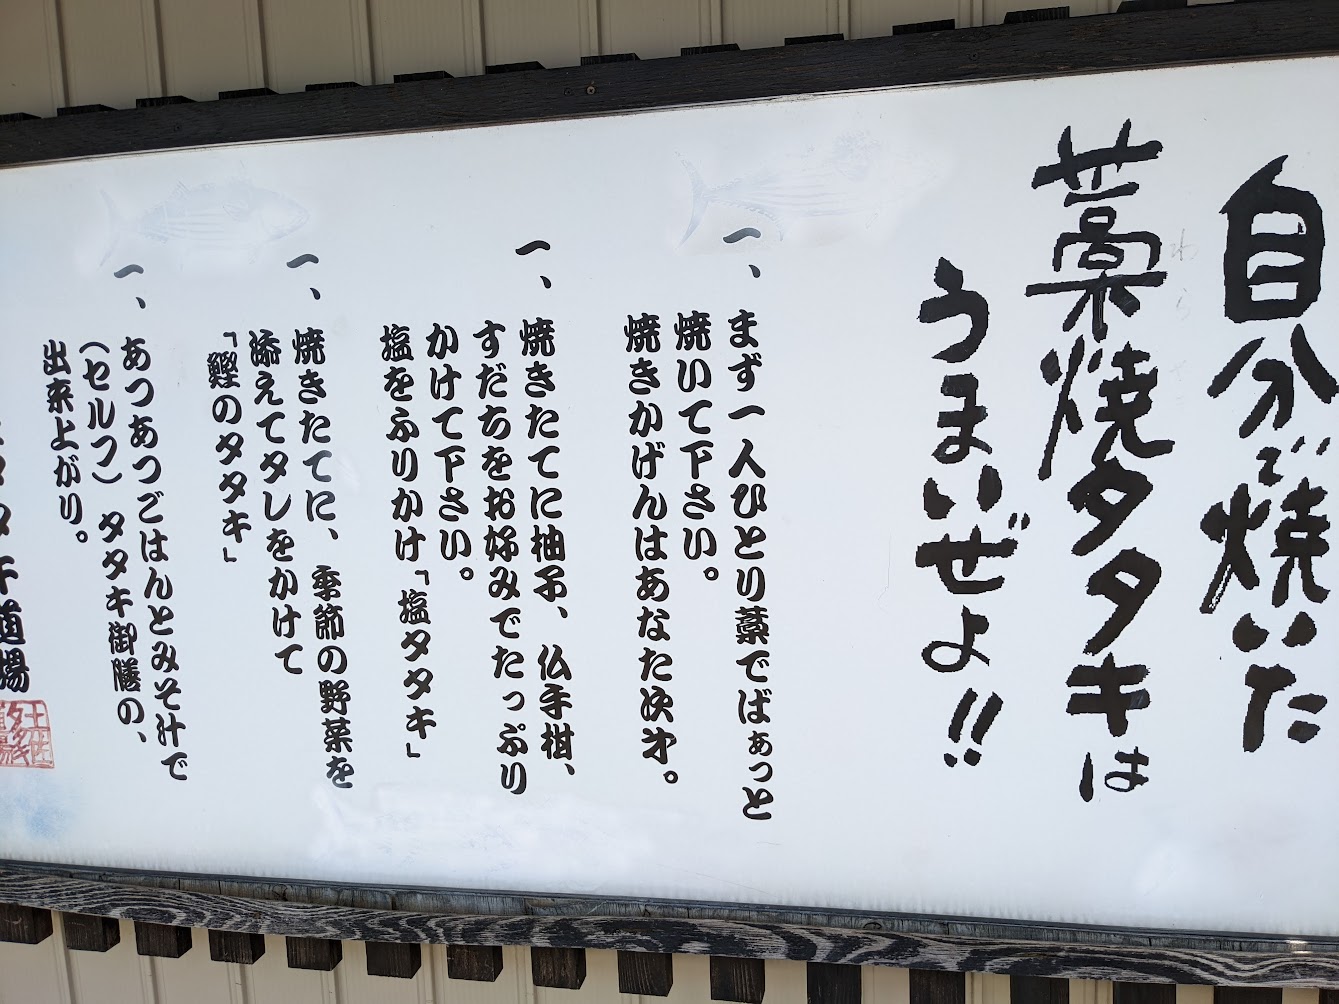 自分で焼いた
藁焼タタキは
わら
うまいぜよ!!
一、まず一人ひとり藁でばぁっと
焼いて下さい。
焼きかげんはあなた次才。
一、焼きたてに柚子、仏手柑、
すだちをお好みでたっぷり
かけて下さい。
塩をふりかけ「塩タタキ」
一、焼きたてに、季節の野菜を
添えてタレをかけて
「鰹のタタキ」
一、あつあつごはんとみそ汁で
(セルフ) タタキ御膳の、
出来上がり。
タタキ道場
土佐
タタキ
道場